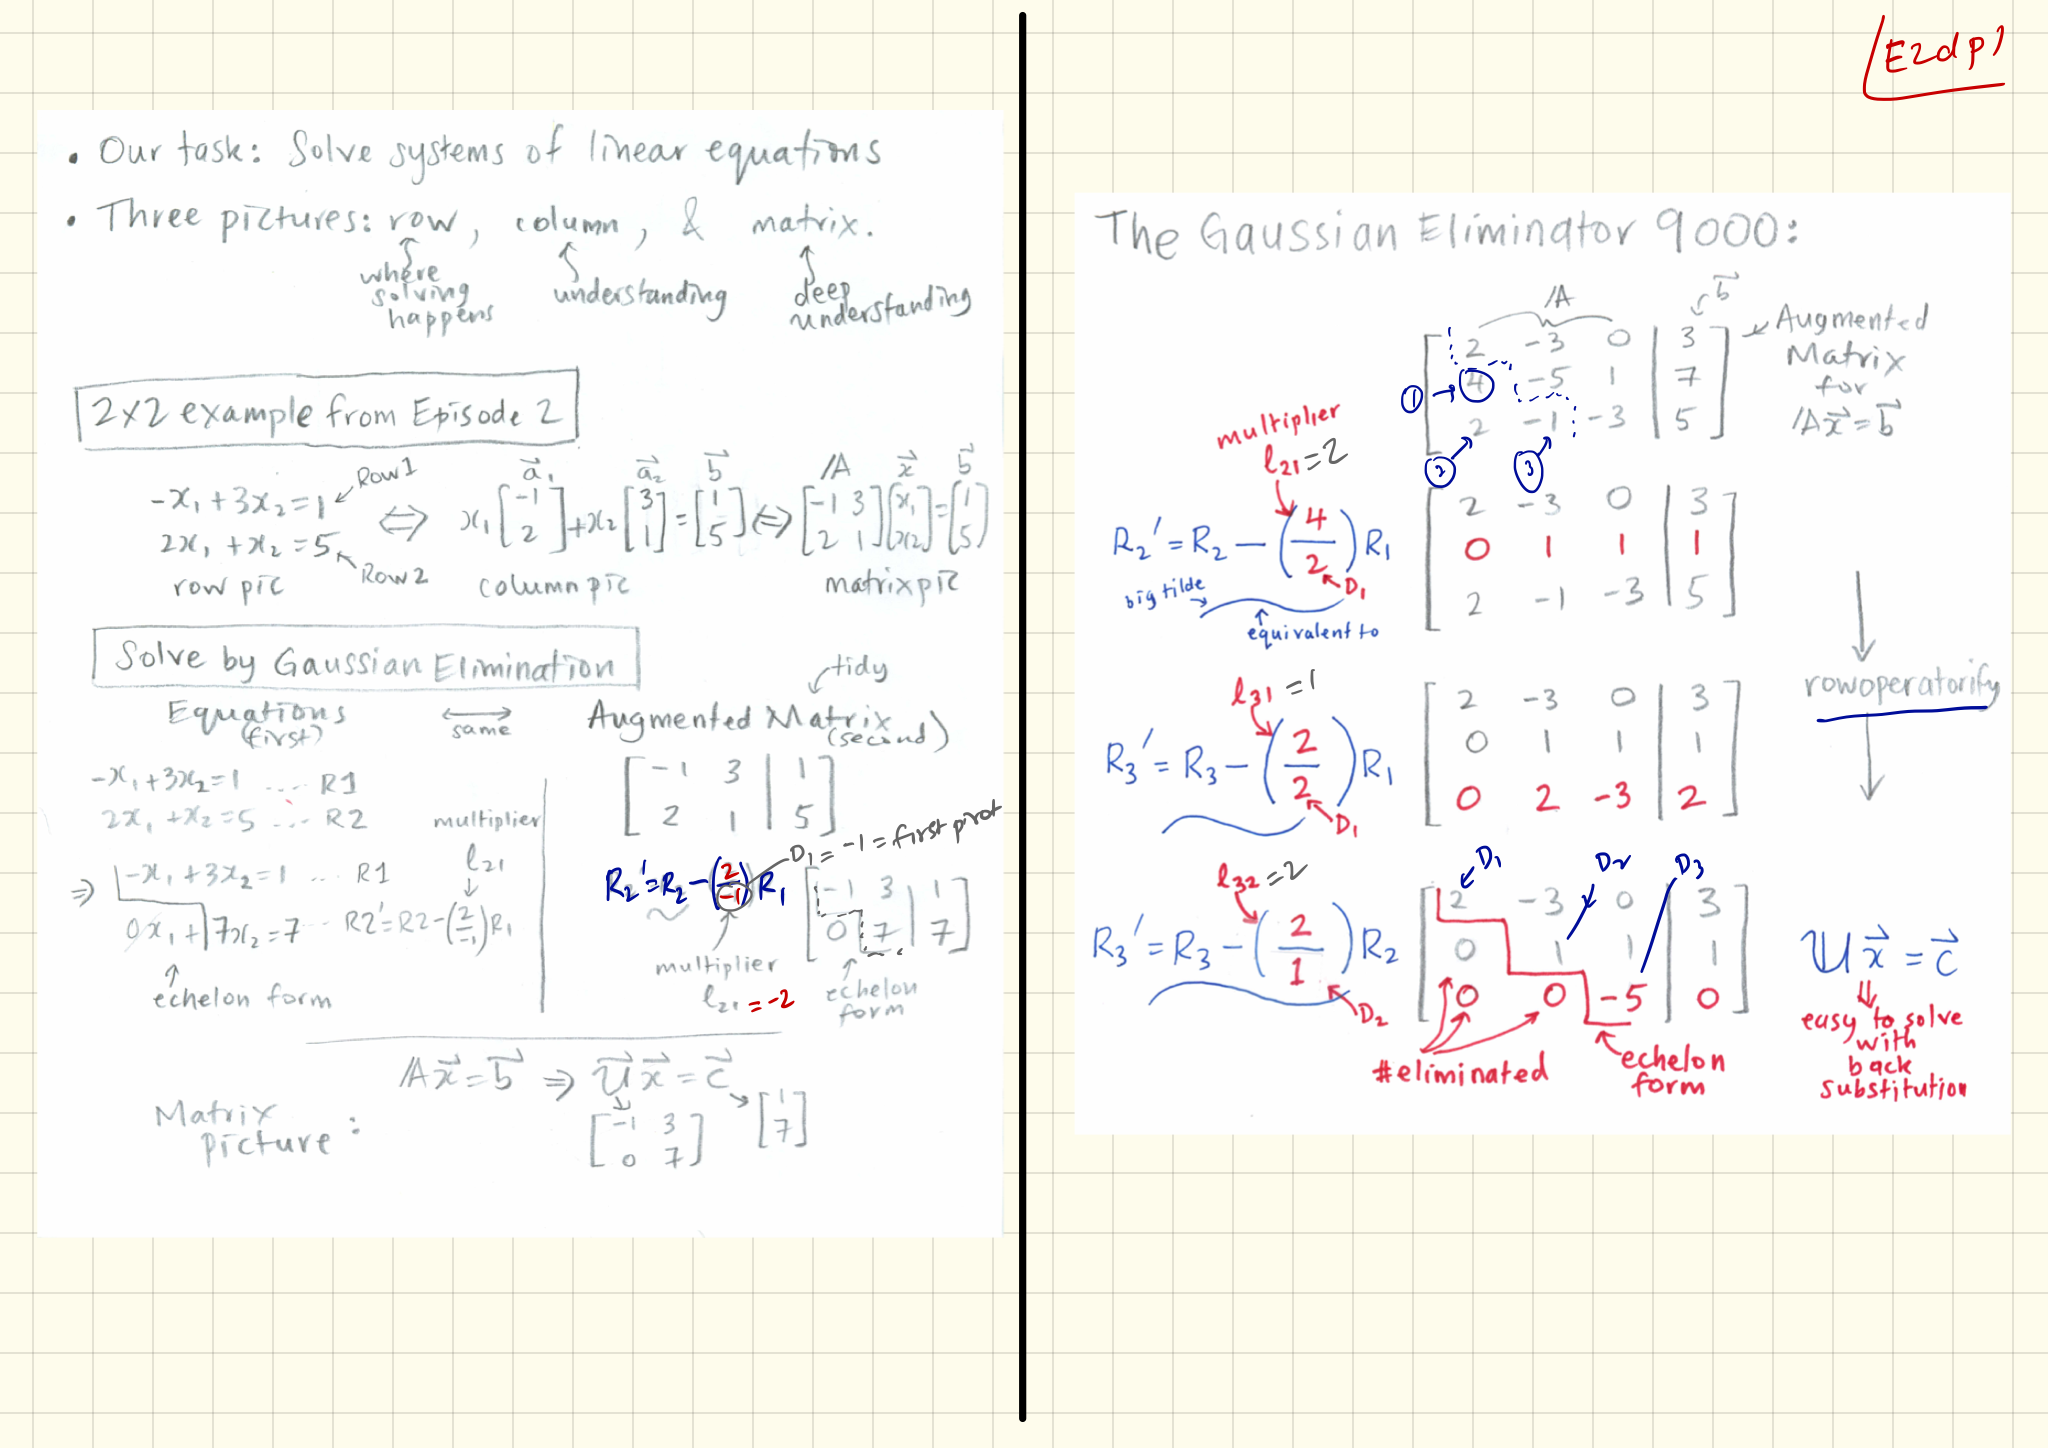 E2dp1
• Our task: Solve systems of linear equations
• Three pictures: row, column, & matrix.
where solving happens
understanding
deep understanding
2x2 example from Episode 2
-x₁ + 3x₂ = 1 Row 1
2x₁ + x₂ = 5 Row 2
row pic
⇔ x₁ [-1 2] + x₂ [3 1] = [1 5]
a⃗₁ a⃗₂ b⃗
column pic
⇔ [-1 3 2 1] [x₁ x₂] = [1 5]
A x⃗ b⃗
matrix pic
Solve by Gaussian Elimination
Equations (first)
⟷ same
Augmented Matrix (second)
tidy
-x₁ + 3x₂ = 1 .... R1
2x₁ + x₂ = 5 ... R2
multiplier
l₂₁
⇒ -x₁ + 3x₂ = 1 ... R1
0x₁ + 7x₂ = 7 ... R2' = R2 - (2/-1) R1
echelon form
[-1 3 | 1
2 1 | 5]
D₁ = -1 = first pivot
R₂' = R₂ - (2/-1) R₁
[-1 3 | 1
0 7 | 7]
multiplier
l₂₁ = -2
echelon form
Ax⃗ = b⃗ ⇒ Ux⃗ = c⃗
Matrix picture:
[-1 3
0 7]
[1
7]
The Gaussian Eliminator 9000:
A b⃗
[2 -3 0 | 3
4 -5 1 | 7
2 -1 -3 | 5]
① ② ③
Augmented Matrix for Ax⃗ = b⃗
multiplier
l₂₁ = 2
R₂' = R₂ - (4/2) R₁
D₁
big tilde
equivalent to
[2 -3 0 | 3
0 1 1 | 1
2 -1 -3 | 5]
rowoperatorify
l₃₁ = 1
R₃' = R₃ - (2/2) R₁
D₁
[2 -3 0 | 3
0 1 1 | 1
0 2 -3 | 2]
l₃₂ = 2
R₃' = R₃ - (2/1) R₂
D₂
D₁ D₂ D₃
[2 -3 0 | 3
0 1 1 | 1
0 0 -5 | 0]
#eliminated
echelon form
Ux⃗ = c⃗
⇓
easy to solve
with
back
substitution